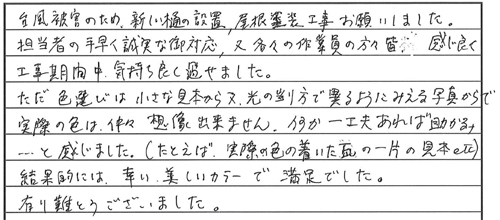 台風被害のため、新しい樋の設置、屋根塗装工事お願いしました。
担当者の手早く誠実な御対応、又各々の作業員の方々皆 感じ良く
工事期間中、気持ち良く過せました。
ただ色選びは小さな見本から又、光の当り方で異るようにみえる写真からで
実際の色は、伴々想像出来ません。何か一工夫あれば助かる
…と感じました。(たとえば、実際の色の着いた瓦の一片の見本etc)
結果的には、幸い、美しいカラーで満足でした。
有り難とうございました。